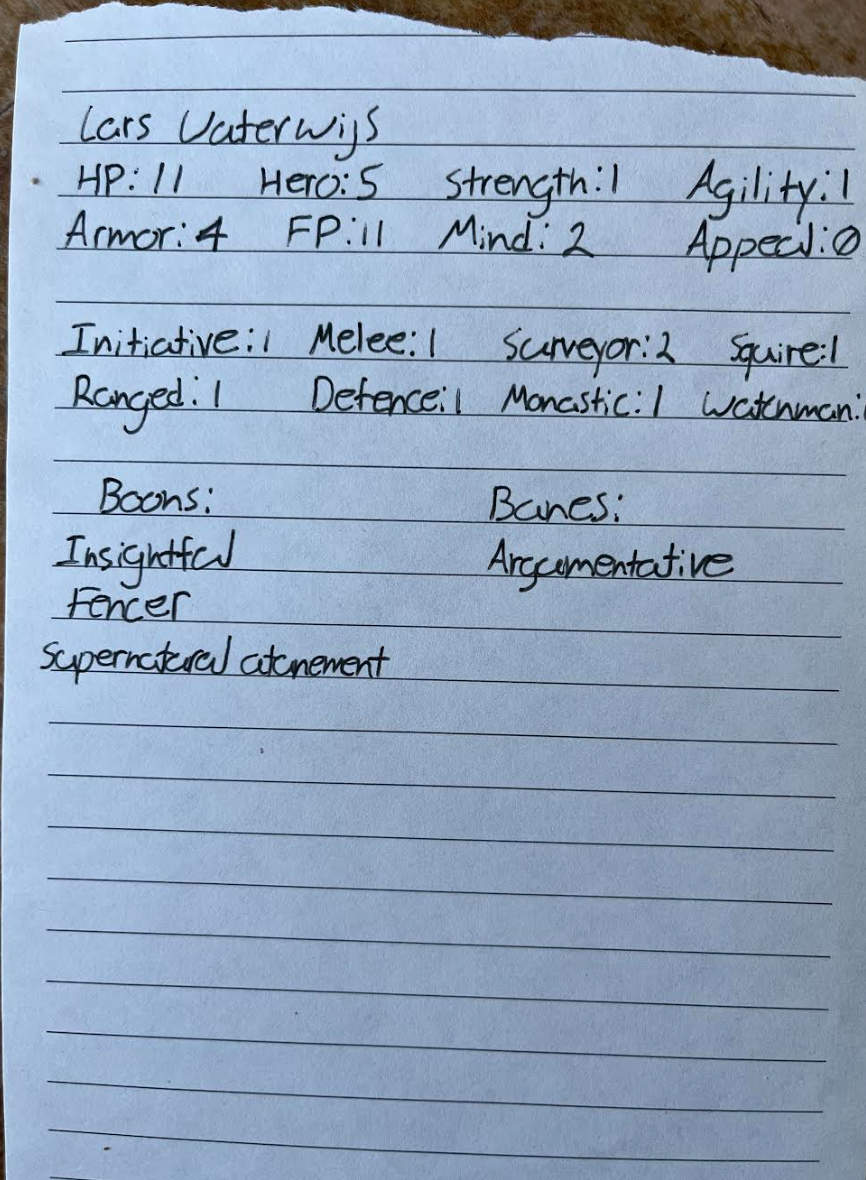 Lars Vaterwijs
HP: 11 Hero: 5 Strength: 1 Agility: 1
Armor: 4 FP: 11 Mind: 2 Appeal: 0
Initiative: 1 Melee: 1 Surveyor: 2 Squire: 1
Ranged: 1 Defence: 1 Monastic: 1 Watchman:
Boons: Banes:
Insightful Argumentative
Fencer
Supernatural atonement